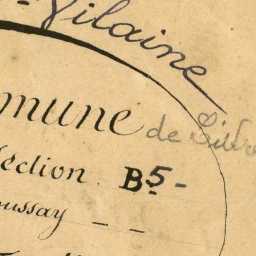 Vilaine
mmune de
Section B5 -
oussay - -